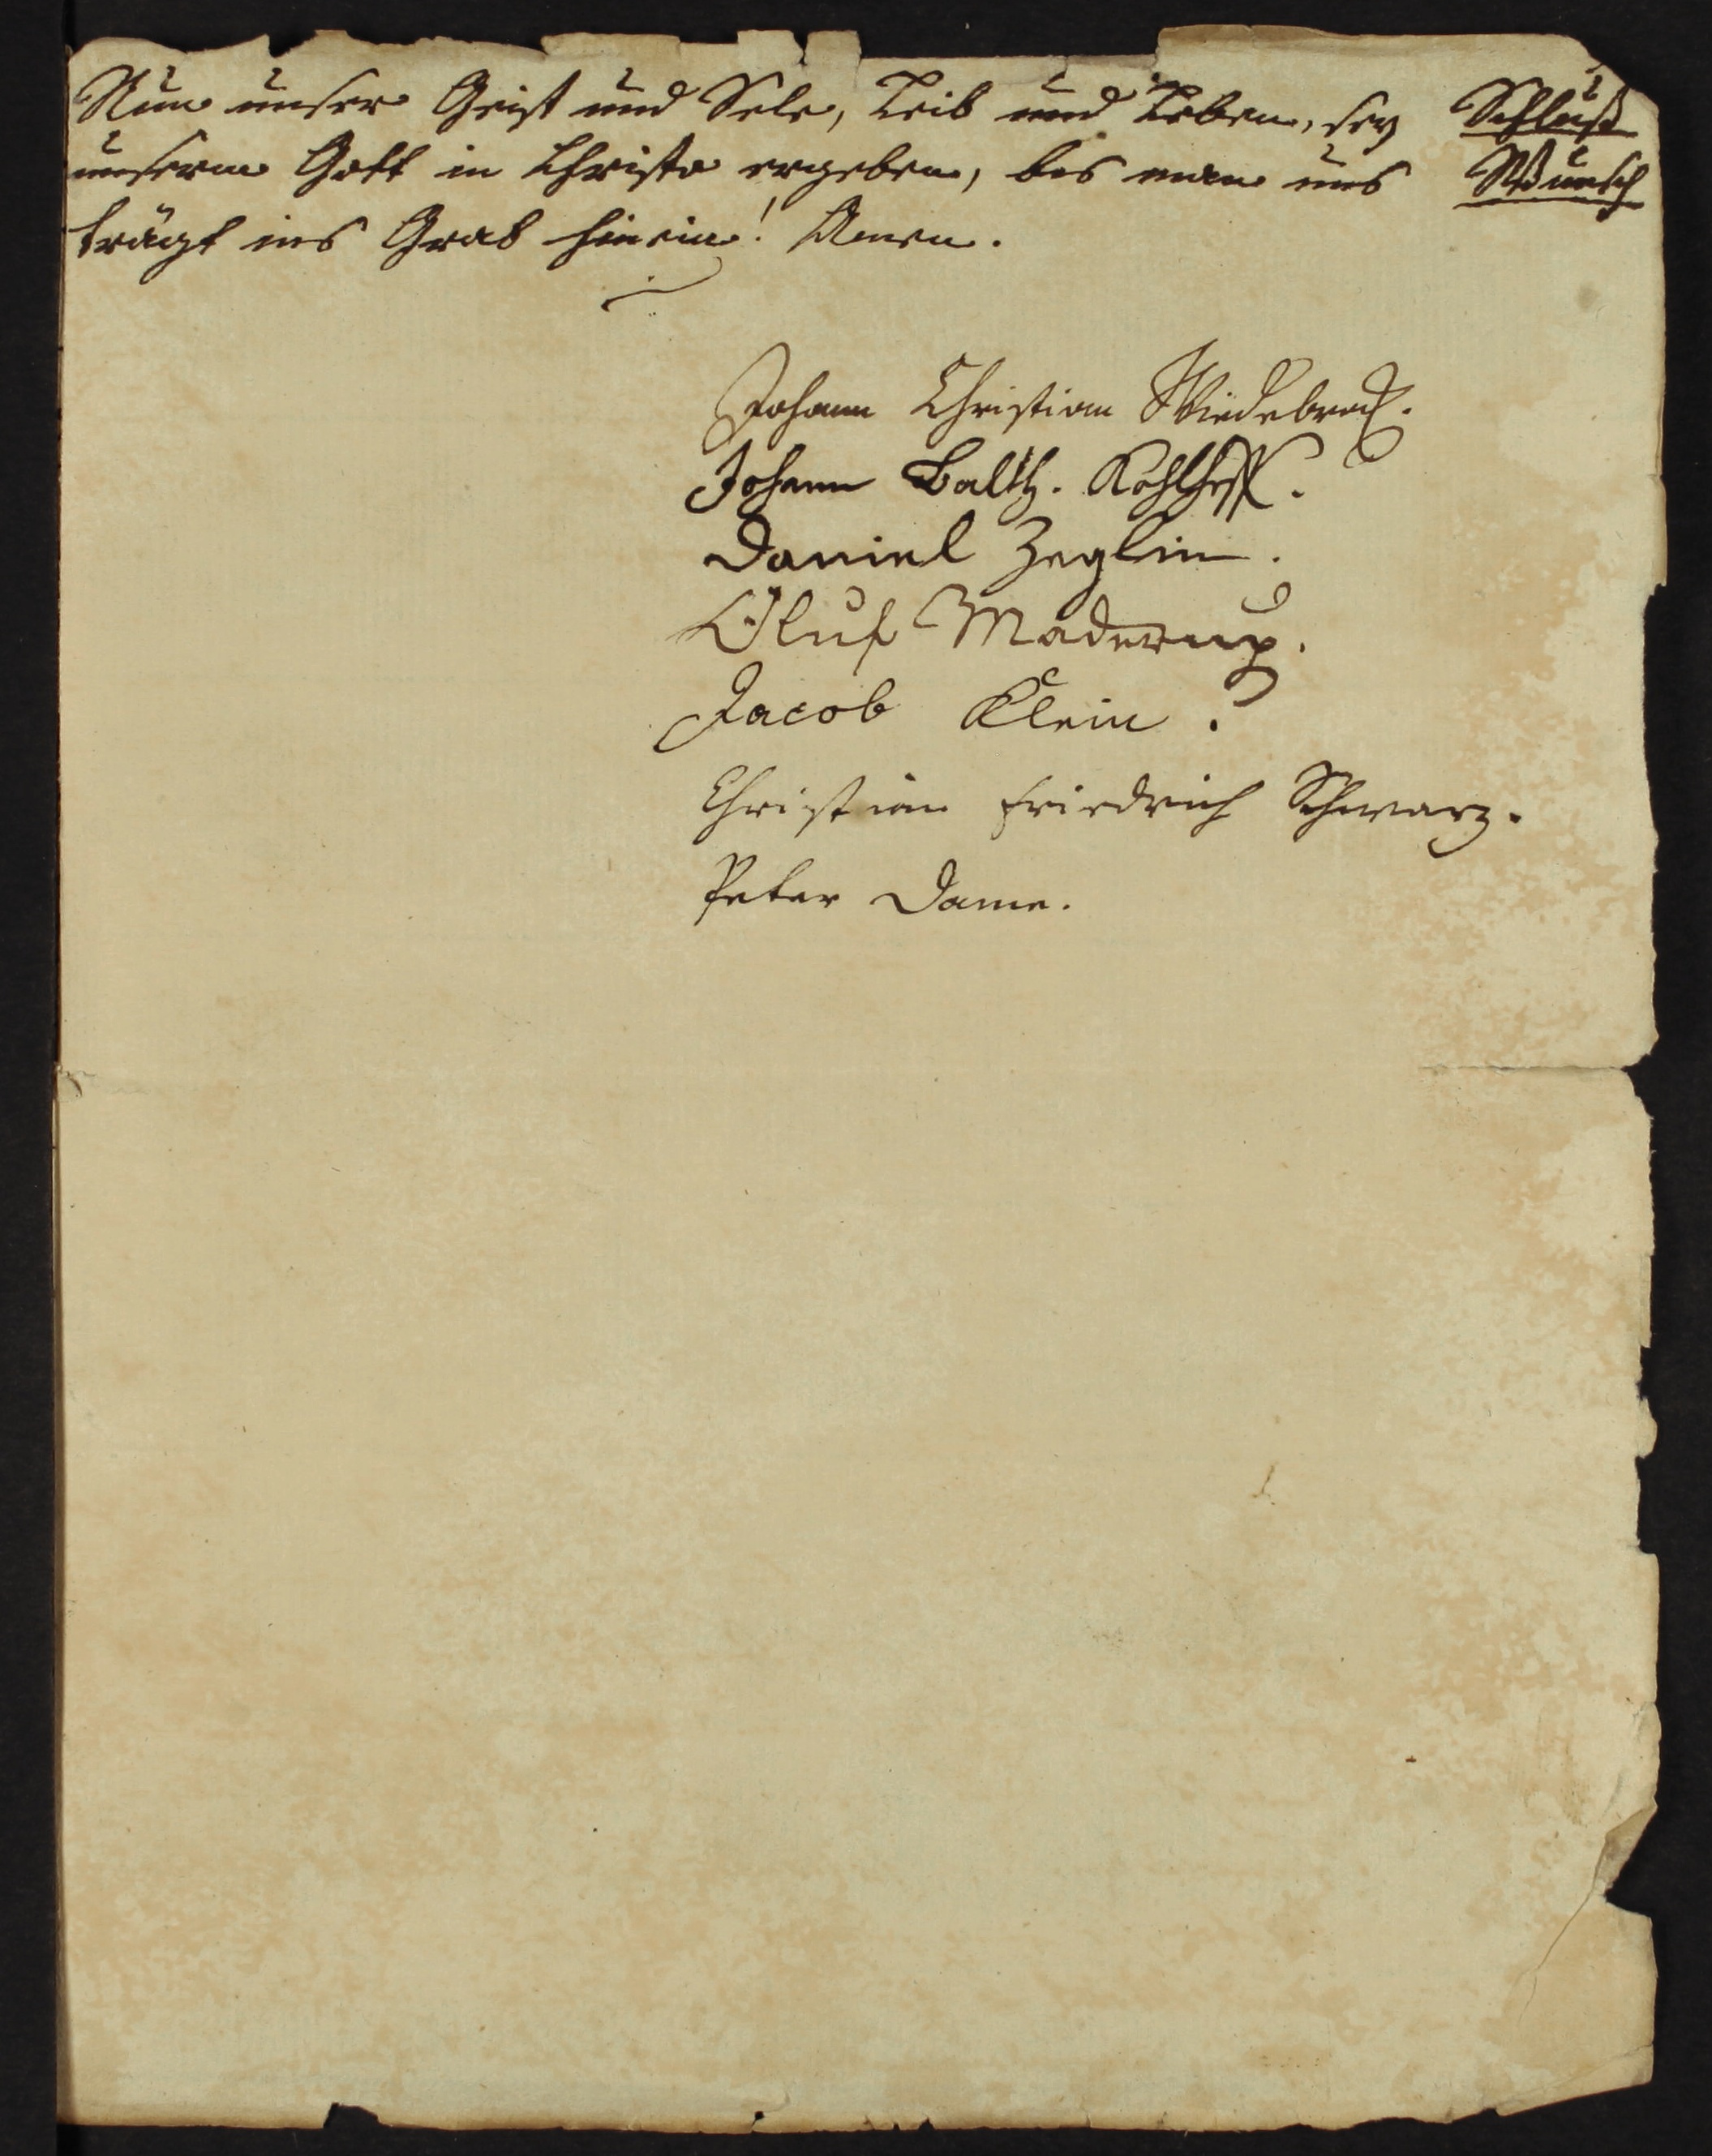 Nun unser Geist und Sele, Leib und Leben, sey
unserm Gott in Christo ergeben, bis man uns
trägt ins Grab hinein! Amen.
Schluß
Wunsch
Johann Christian Wiedebrock.
Johann Balth. Kohlhoff.
Daniel Zeglin.
Oluf Maderup.
Jacob Klein.
Christian Friedrich Schwarz.
Peter Dame.